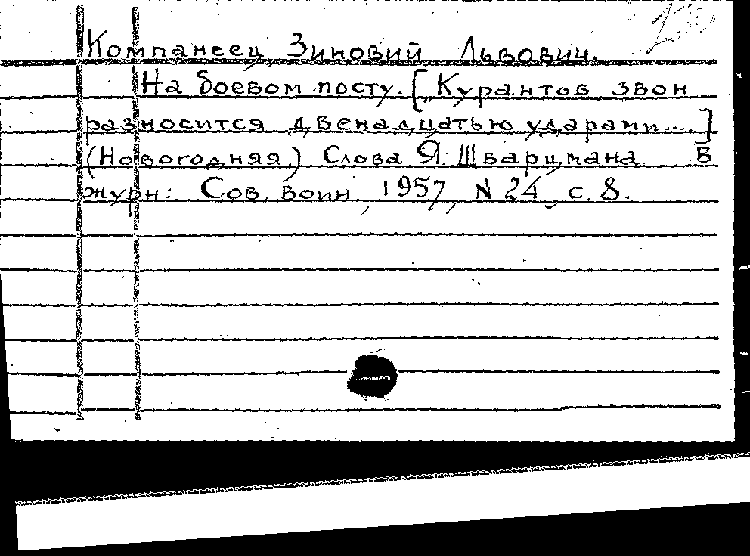 Компанеец, Зиновий Львович.
На боевом посту. [Курантов звон
разносится двенадцатью ударами...]
(Новогодняя.) Слова Я. Шварцмана. В
журн: Сов. воин, 1957, N 24, с. 8.